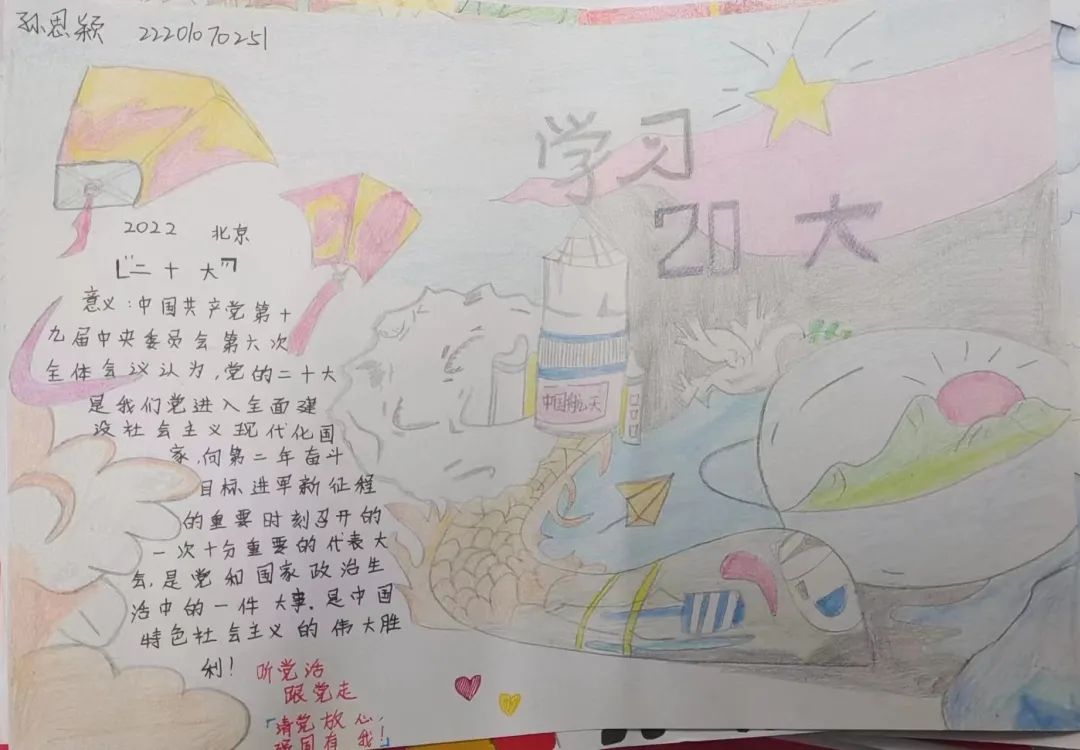 孙思颖 22201070251
学习
20大
2022 北京
『二十大』
意义：中国共产党第十
九届中央委员会第六次
全体会议认为，党的二十大
是我们党进入全面建
设社会主义现代化国
家，向第二年奋斗
目标进军新征程
的重要时刻召开的
一次十分重要的代表大
会，是党和国家政治生
活中的一件大事，是中国
特色社会主义的伟大胜
利！
听党话
跟党走
「请党放心，
强国有我！」
中国航天